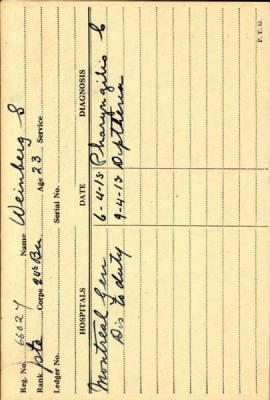 Reg. No. 66027 Name Weinberg S
Rank pte Corps 24th Bn. Age 23 Service
Ledger No. Serial No.
HOSPITALS DATE DIAGNOSIS
Montreal Gen 6-4-15 Pharyngitis C
Dis to duty 9-4-15 Diptheria
P.T.O.